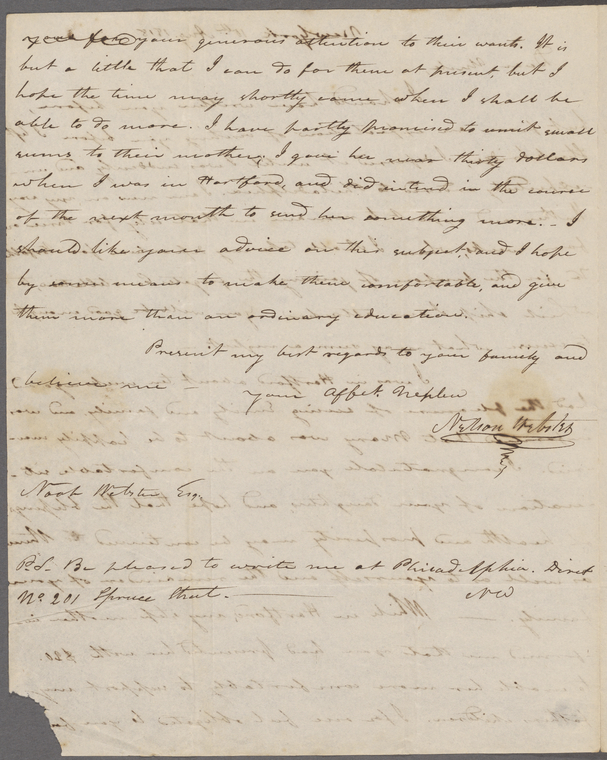 your generous attention to their wants. It is
but a little that I can do for them at present, but I
hope the time may shortly come when I shall be
able to do more. I have partly promised to remit small
sums to their mother; I gave her near thirty dollars
when I was in Hartford, and did intend in the course
of the next month to send her something more. - I
should like your advice on this subject; and I hope
by means to make them comfortable, and give
them more than an ordinary education.
Present my best regards to your family and
believe me -
your Affect. Nephew
Nelson Webster
Noah Webster Esq.
P.S. Be pleased to write me at Philadelphia. Direct
No. 201 Spruce Street. NW